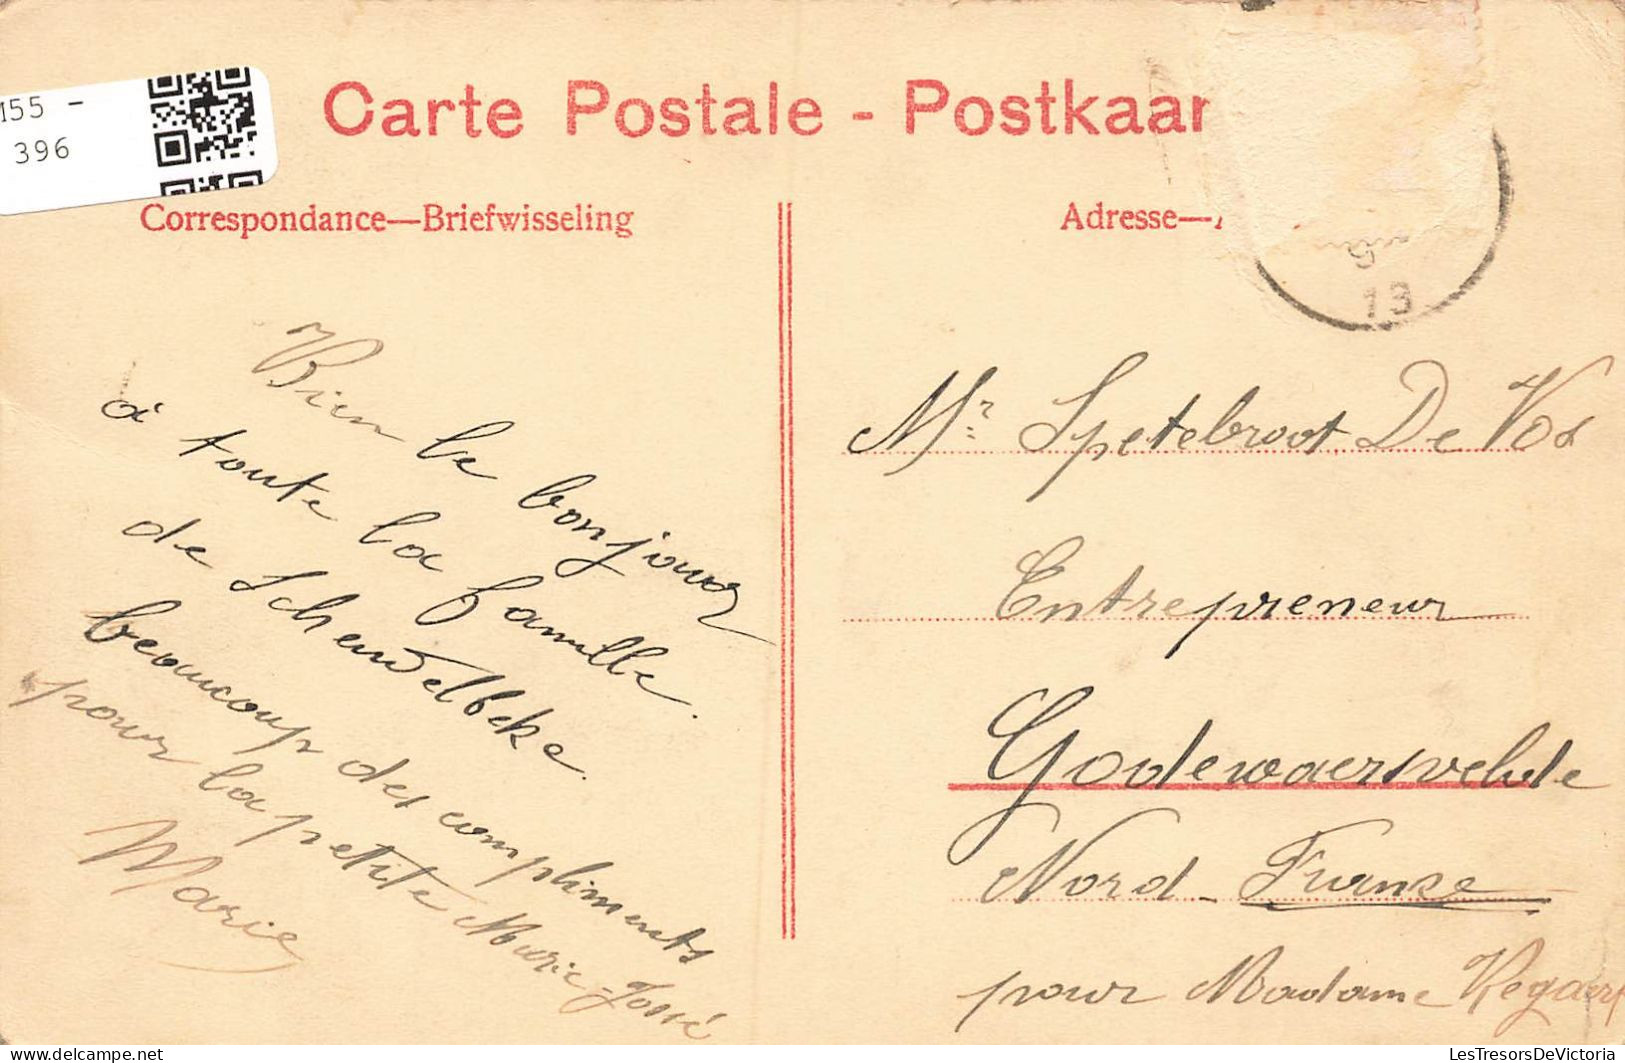 155 -
396
Carte Postale - Postkaar
Correspondance—Briefwisseling
Adresse—
13
Bien le bonjour
à toute la famille.
de Schendelbeke.
beaucoup des compliments
pour la petite Marie-José
Marie
Mr Spetebroot De Vos
Entrepreneur
Godewaersvelde
Nord - France
pour Madame Regaert
LesTresorsDeVictoria
delcampe.net